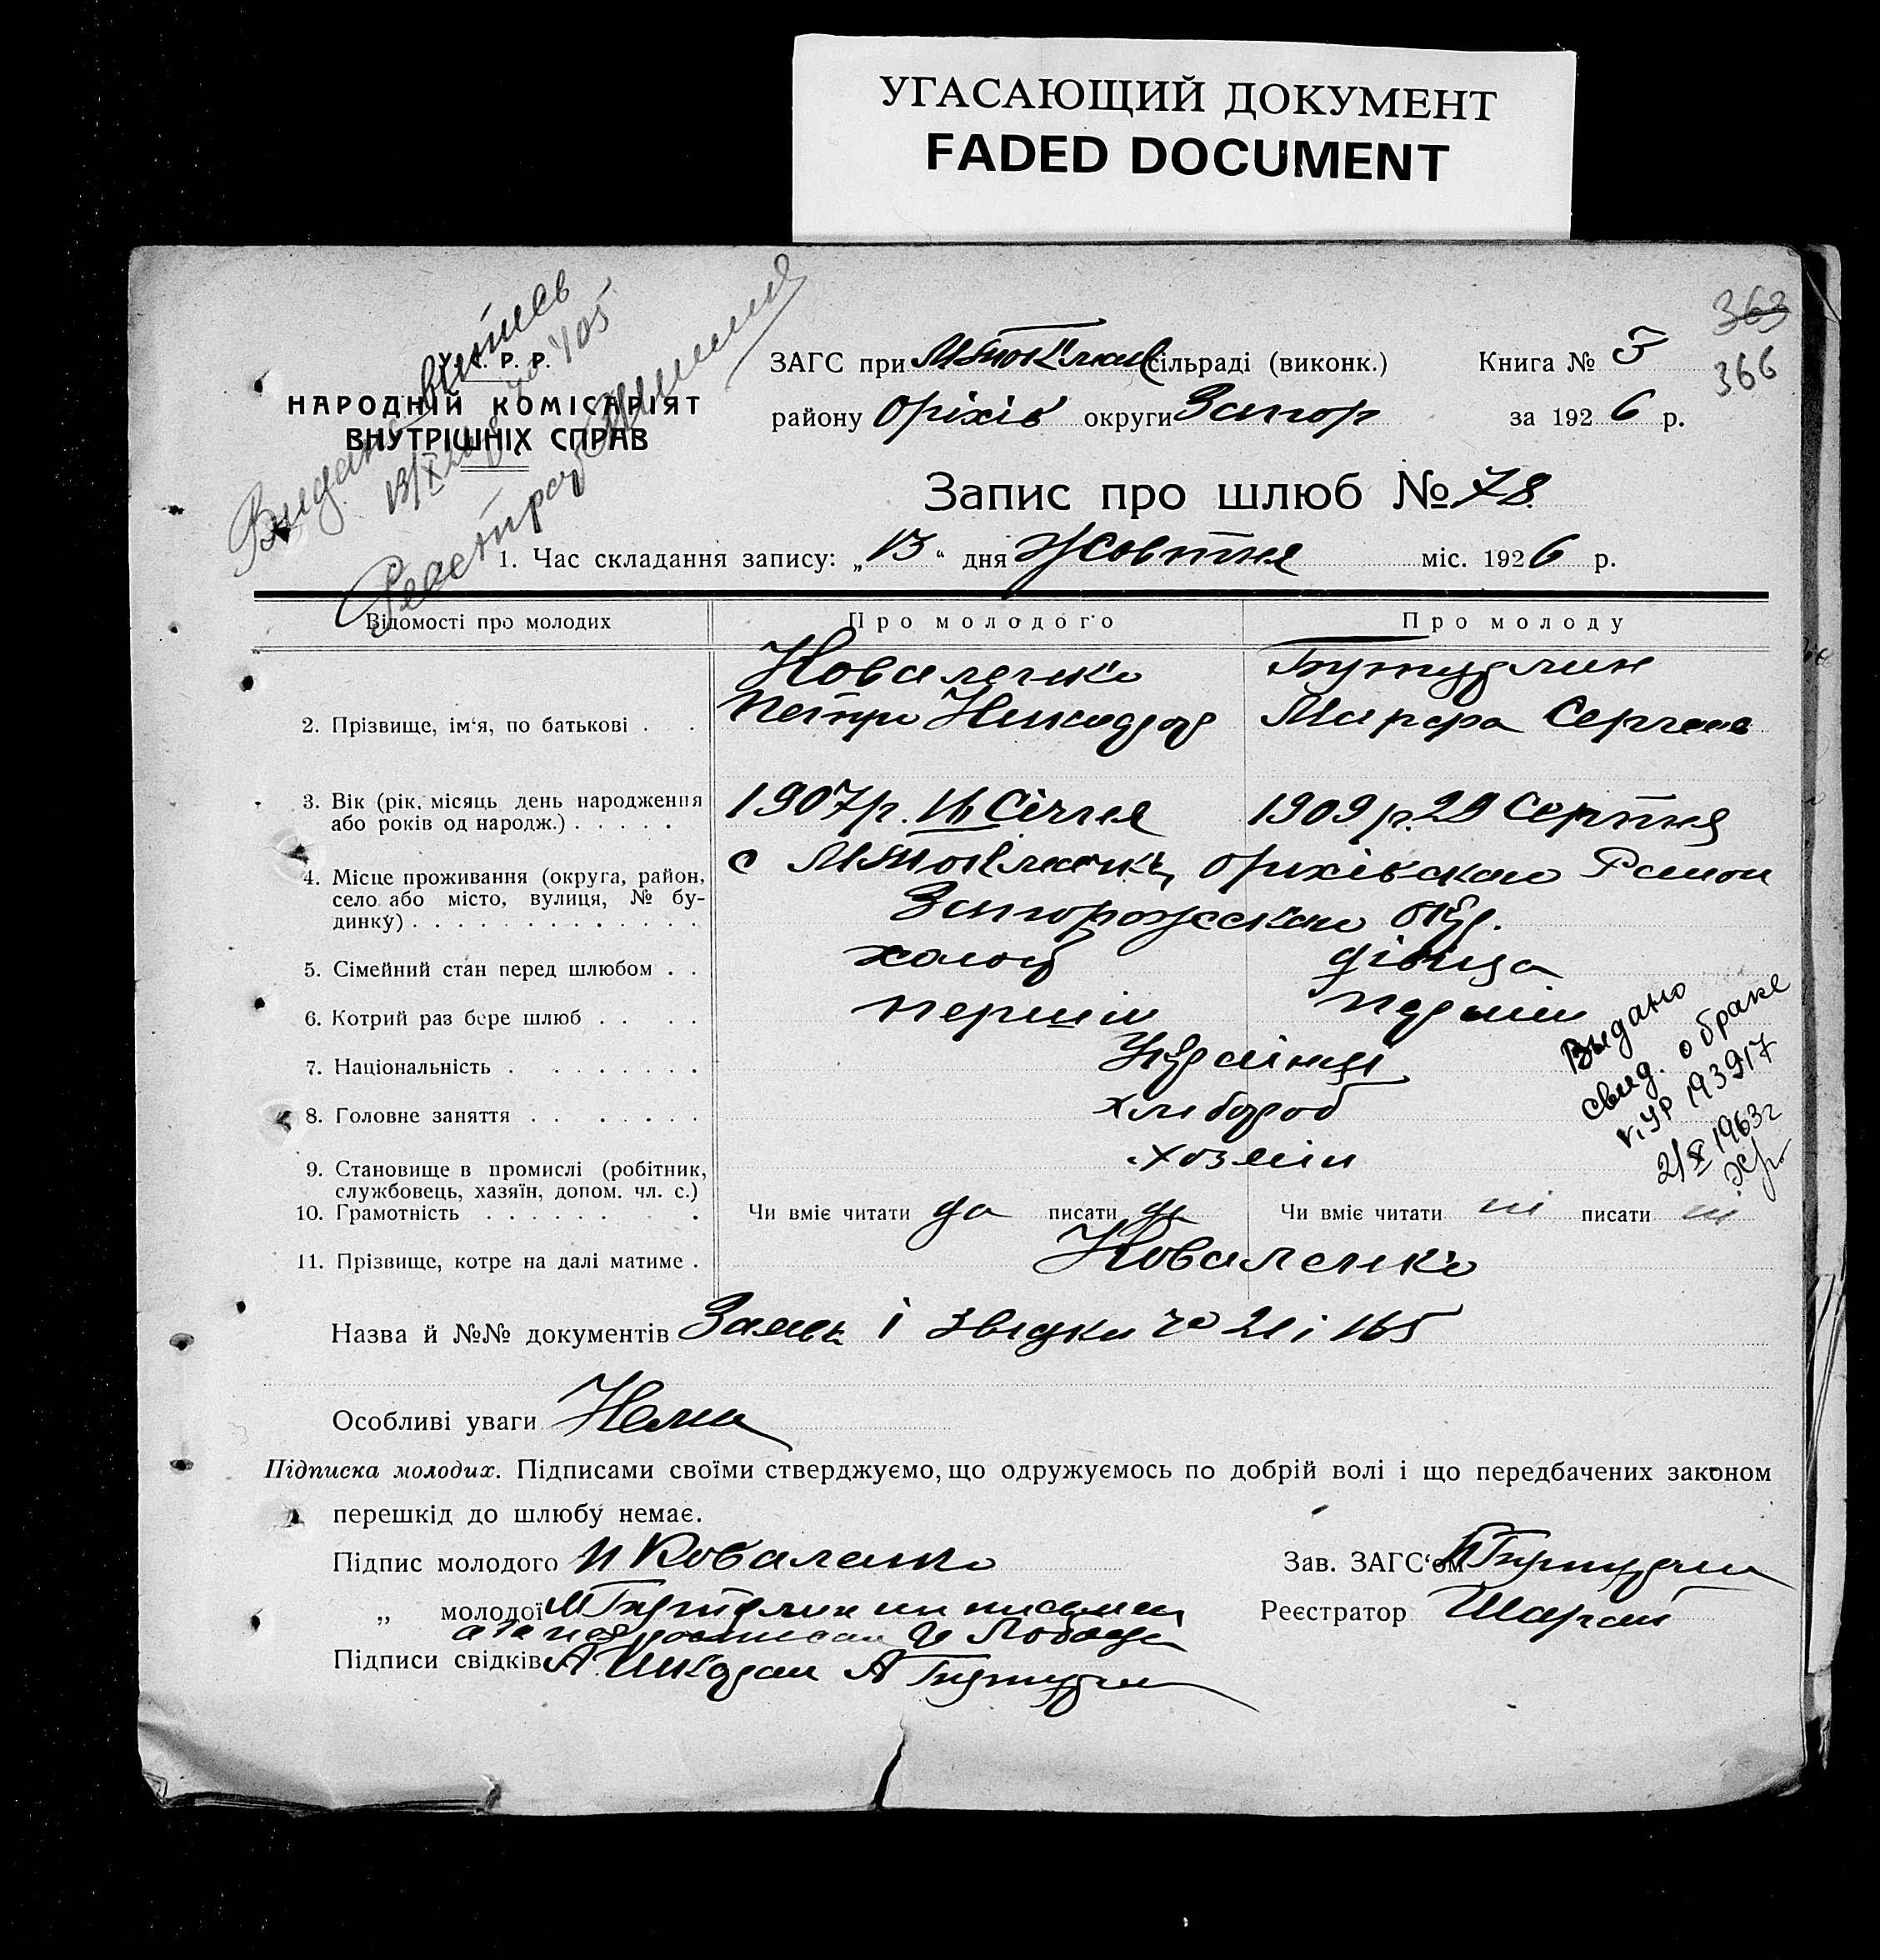 УГАСАЮЩИЙ ДОКУМЕНТ
FADED DOCUMENT
363
366
У. С. Р. Р.
НАРОДНІЙ КОМІСАРІЯТ
ВНУТРІШНІХ СПРАВ
Видано витяг
13/X 26 р № 405
ЗАГС при сільраді (виконк.) Книга № 5
району Оріхів округи Запор за 1926 р.
Запис про шлюб № 78
1. Час складання запису: „13" дня Жовтня міс. 1926 р.
Відомості про молодих Про молодого Про молоду
Коваленко
2. Прізвище, ім'я, по батькові . . Петро Никодор Марфа Сергеев
3. Вік (рік, місяць день народження або років од народж.) . . . . . 1907 р. 16 Січня 1909 р. 29 Серпня
4. Місце проживання (округа, район, село або місто, вулиця, № будинку) . . . . . . . . . . . . .
с Оріхівскаго Район
Запорожскаго Окр.
5. Сімейний стан перед шлюбом . . холост дівица
6. Котрий раз бере шлюб . . . . першій першій
7. Національність . . . . . . . . Українці
8. Головне заняття . . . . . . . хлибороб
9. Становище в промислі (робітник, службовець, хазяїн, допом. чл. с.) хозяін
10. Грамотність . . . . . . . . Чи вміє читати да писати да Чи вміє читати ні писати ні
11. Прізвище, котре на далі матиме . Коваленко
Выдано
свид. о браке
V. УР 193917
2/X 1963 г
Назва й №№ документів Заява і звідки № 21 і 165
Особливі уваги Нема
Підписка молодих. Підписами своїми стверджуємо, що одружуємось по добрій волі і що передбачених законом
перешкід до шлюбу немає.
Підпис молодого П Коваленко Зав. ЗАГС'ом
„ молодої Реєстратор
Підписи свідків